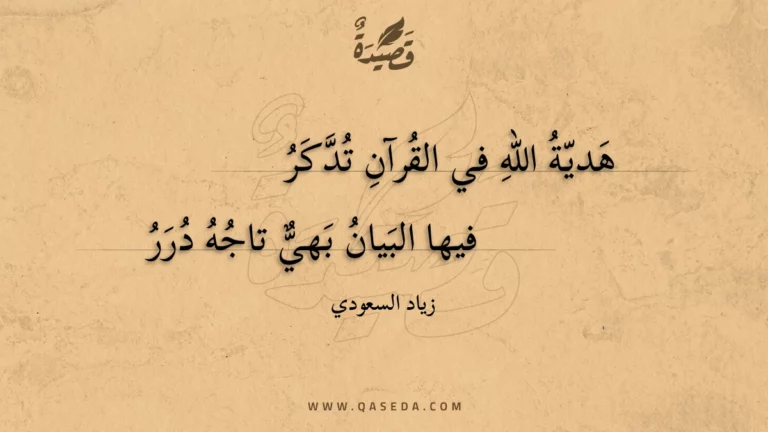 قَصِيْدَةٌ
هَديّةُ اللهِ في القُرآنِ تُدَّكَرُ
فيها البَيانُ بَهيٌّ تاجُهُ دُرَرُ
زياد السعودي
WWW.QASEDA.COM